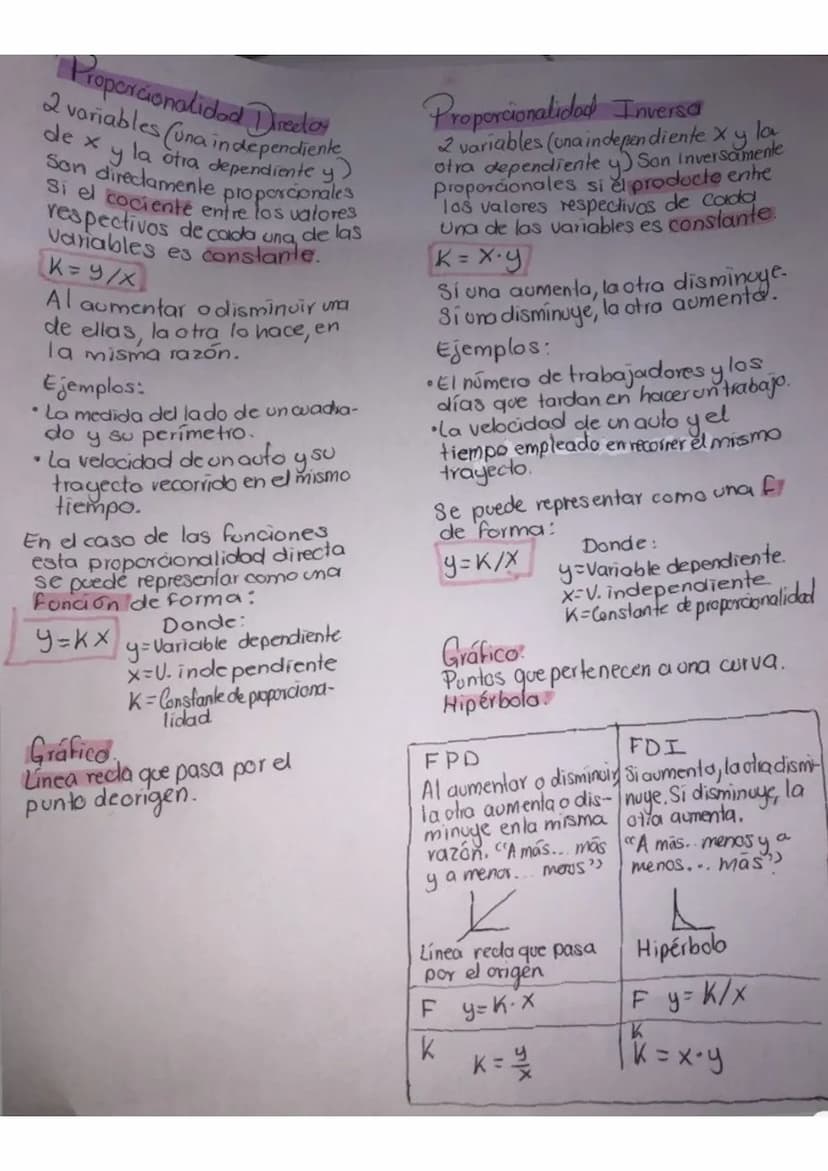 Proporcionalidad Directa
2 variables (una independiente
de x y la otra dependiente y)
Son directamente proporcionales
si el cociente entre los valores
respectivos de cada una de las
variables es constante.
K = y/x
Al aumentar o disminuir una
de ellas, la otra lo hace, en
la misma razón.
Ejemplos:
• La medida del lado de un cuadra-
do y su perímetro.
• La velocidad de un auto y su
trayecto recorrido en el mismo
tiempo.
En el caso de las funciones
esta proporcionalidad directa
se puede representar como una
función de forma:
y=Kx
Donde:
y=Variable dependiente
x=V. independiente
K=Constante de proporciona-
lidad
Gráfico.
Línea recta que pasa por el
punto de origen.
Proporcionalidad Inversa
2 variables (una independiente x y la
otra dependiente y) Son Inversamente
proporcionales si el producto entre
los valores respectivos de cada
una de las variables es constante.
K = x·y
Si una aumenta, la otra disminuye.
Si una disminuye, la otra aumenta.
Ejemplos:
• El número de trabajadores y los
días que tardan en hacer un trabajo.
• La velocidad de un auto y el
tiempo empleado en recorrer el mismo
trayecto.
Se puede representar como una f
de forma:
y=K/x
Donde:
y=Variable dependiente.
x=V. independiente
K=Constante de proporcionalidad
Gráfico:
Puntos que pertenecen a una curva.
Hipérbola.
FPD
Al aumentar o disminuir
la otra aumenta o dis-
minuye en la misma
razón. "A más... más
y a menor... menos"
Línea recta que pasa
por el origen
F y=K·x
K K = y/x
FDI
Si aumenta, la otra dismi-
nuye. Si disminuye, la
otra aumenta.
"A más.. menos y a
menos... más"
Hipérbola
F y= K/x
K
K = x·y